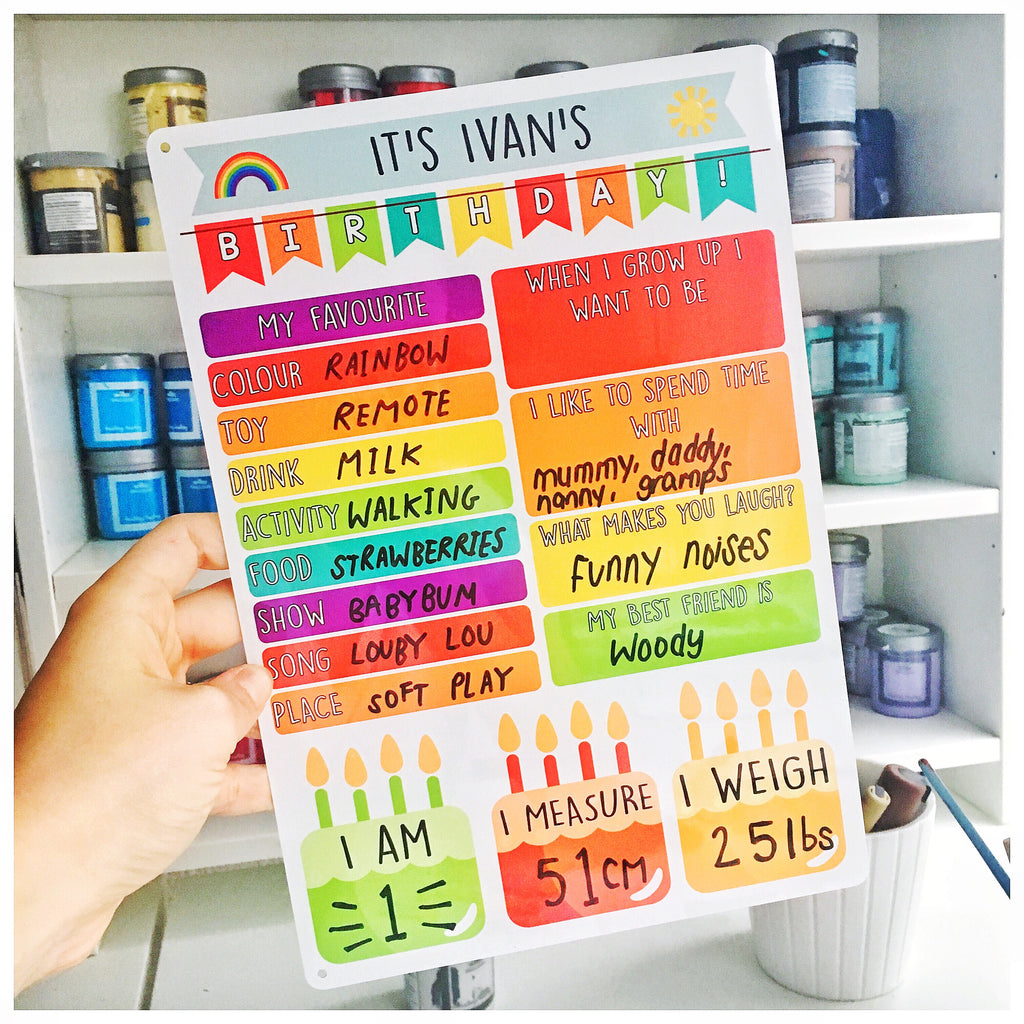 IT'S IVAN'S
BIRTHDAY!
MY FAVOURITE
COLOUR RAINBOW
TOY REMOTE
DRINK MILK
ACTIVITY WALKING
FOOD STRAWBERRIES
SHOW BABYBUM
SONG LOUBY LOU
PLACE SOFT PLAY
WHEN I GROW UP I
WANT TO BE
I LIKE TO SPEND TIME
WITH
mummy, daddy,
nanny, gramps
WHAT MAKES YOU LAUGH?
Funny noises
MY BEST FRIEND IS
Woody
I AM
1
I MEASURE
51cm
I WEIGH
25lbs